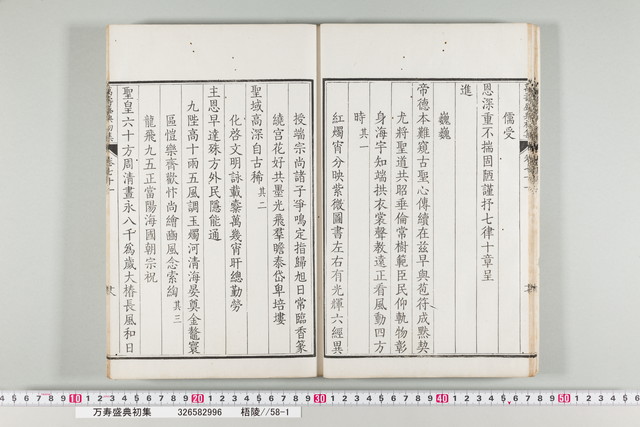 儒受
恩深重不揣固陋謹抒七律十章呈
進
巍巍
帝德本難窺古聖心傳續在茲早與苞符成默契
尤將聖道共昭垂倫常樹範臣民仰軌物彰
身海宇知端拱衣裳聲教遠正看風動四方
時其一
紅燭宵分映紫微圖書左右有光輝六經異
授端宗尚諸子爭鳴定指歸旭日常臨香篆
繞宮花好共墨光飛羣瞻泰岱卑培塿
聖域高深自古稀其二
化啓文明詠載賡萬幾宵旰總勤勞
主恩早達殊方外民隱能通
九陛高十雨五風調玉燭河清海晏奠金鼇寰
區愷樂齊歡忭尚繪豳風念索綯其三
龍飛九五正當陽海國朝宗祝
聖皇六十方周清晝永八千為歲大椿長風和日
10 20 30 40 50
万寿盛典初集 326582996 梧陵//58-1